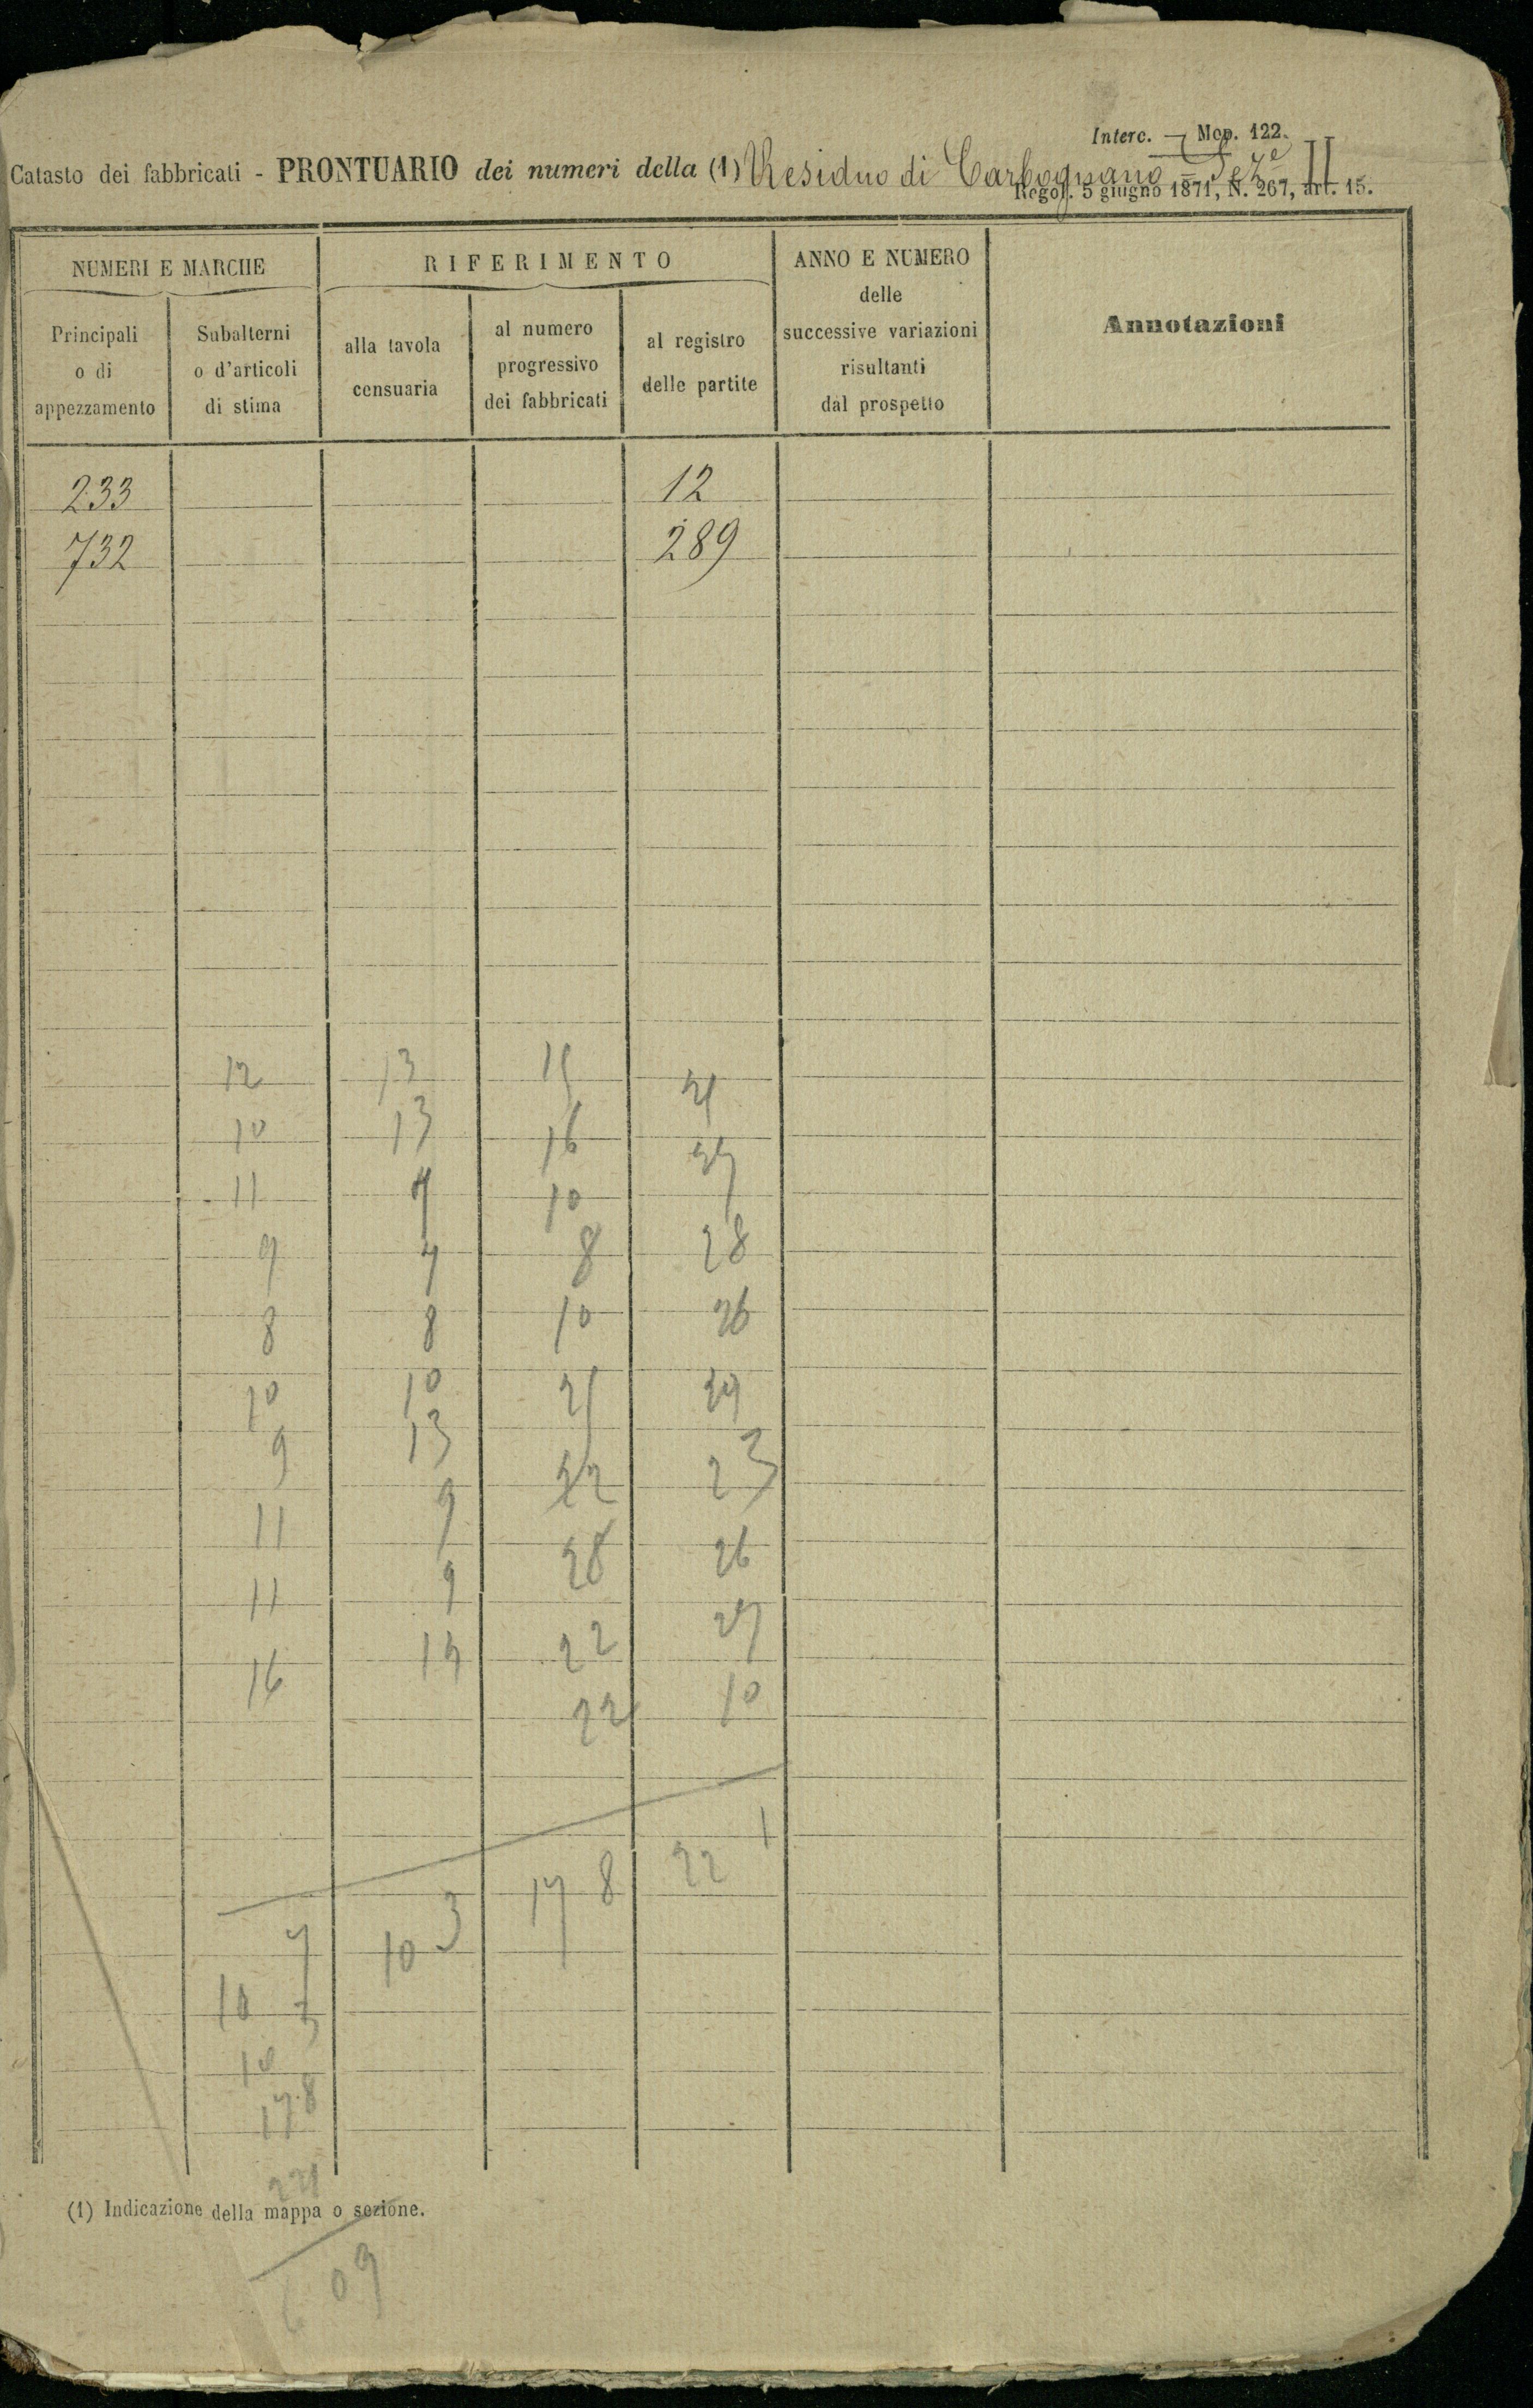 Interc. — Mod. 122.
Catasto dei fabbricati - PRONTUARIO dei numeri della (1) Residuo di Carbognano = Seze II
Regol. 5 giugno 1871, N. 267, art. 15.
NUMERI E MARCHE
Principali
o di
appezzamento
Subalterni
o d'articoli
di stima
RIFERIMENTO
alla tavola
censuaria
al numero
progressivo
dei fabbricati
al registro
delle partite
ANNO E NUMERO
delle
successive variazioni
risultanti
dal prospetto
Annotazioni
233 12
732 289
12 13 15
10 13 16
11 10
9 7 8 28
8 8 10 26
10 10
9 13 22 23
11 9 26
11 9 22 27
16 22 10
103 178 221
10
178
221
(1) Indicazione della mappa o sezione.
609